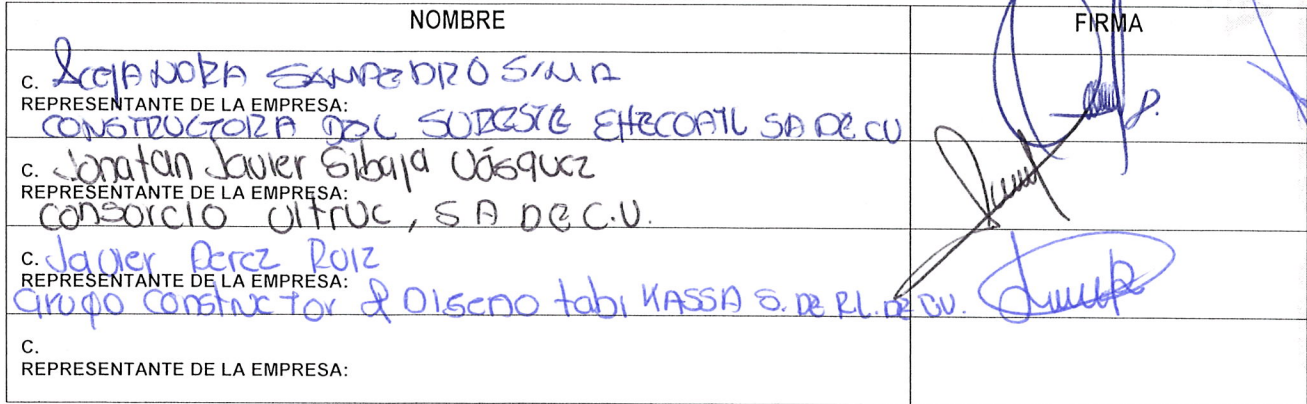 NOMBRE FIRMA
C. Alejandra SANPEDRO SIMA
REPRESENTANTE DE LA EMPRESA:
CONSTRUCTORA DEL SURESTE EHECOATL SA DE CV
C. Jonatan Javier Sibaja Vásquez
REPRESENTANTE DE LA EMPRESA:
CONSORCIO Ultruc, S A DE C.V.
C. Javier Perez Ruiz
REPRESENTANTE DE LA EMPRESA:
Grupo Constructor & Diseno tabi KASSA S. DE RL. DE CV.
C.
REPRESENTANTE DE LA EMPRESA: